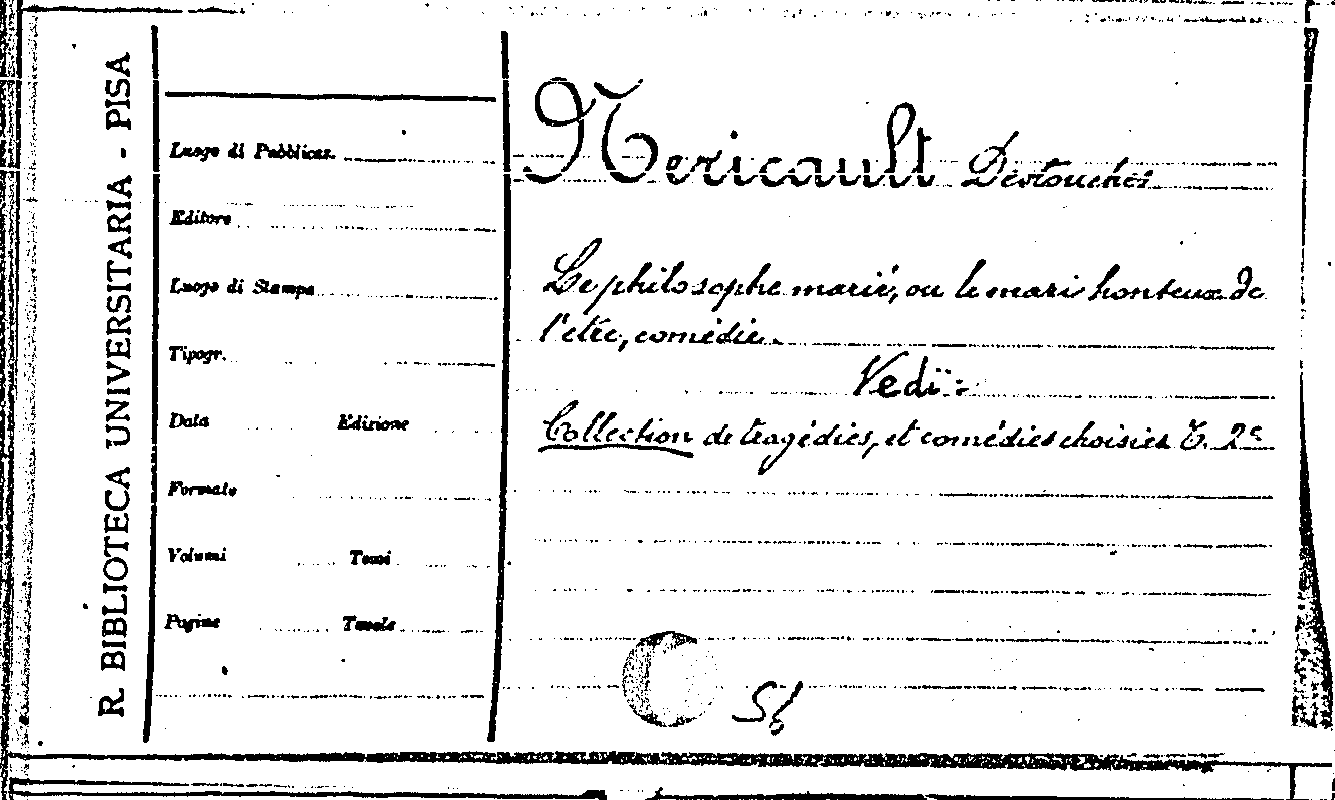 R. BIBLIOTECA UNIVERSITARIA - PISA
Luogo di Pubblicaz.
Editore
Luogo di Stampa
Tipogr.
Data Edizione
Formato
Volumi Tomi
Pagine Tavole
Nericault Destouches
Le philosophe marié, ou le mari honteux de
l'etre, comédie.
Vedi:
Collection de tragédies, et comédies choisies T. 2e